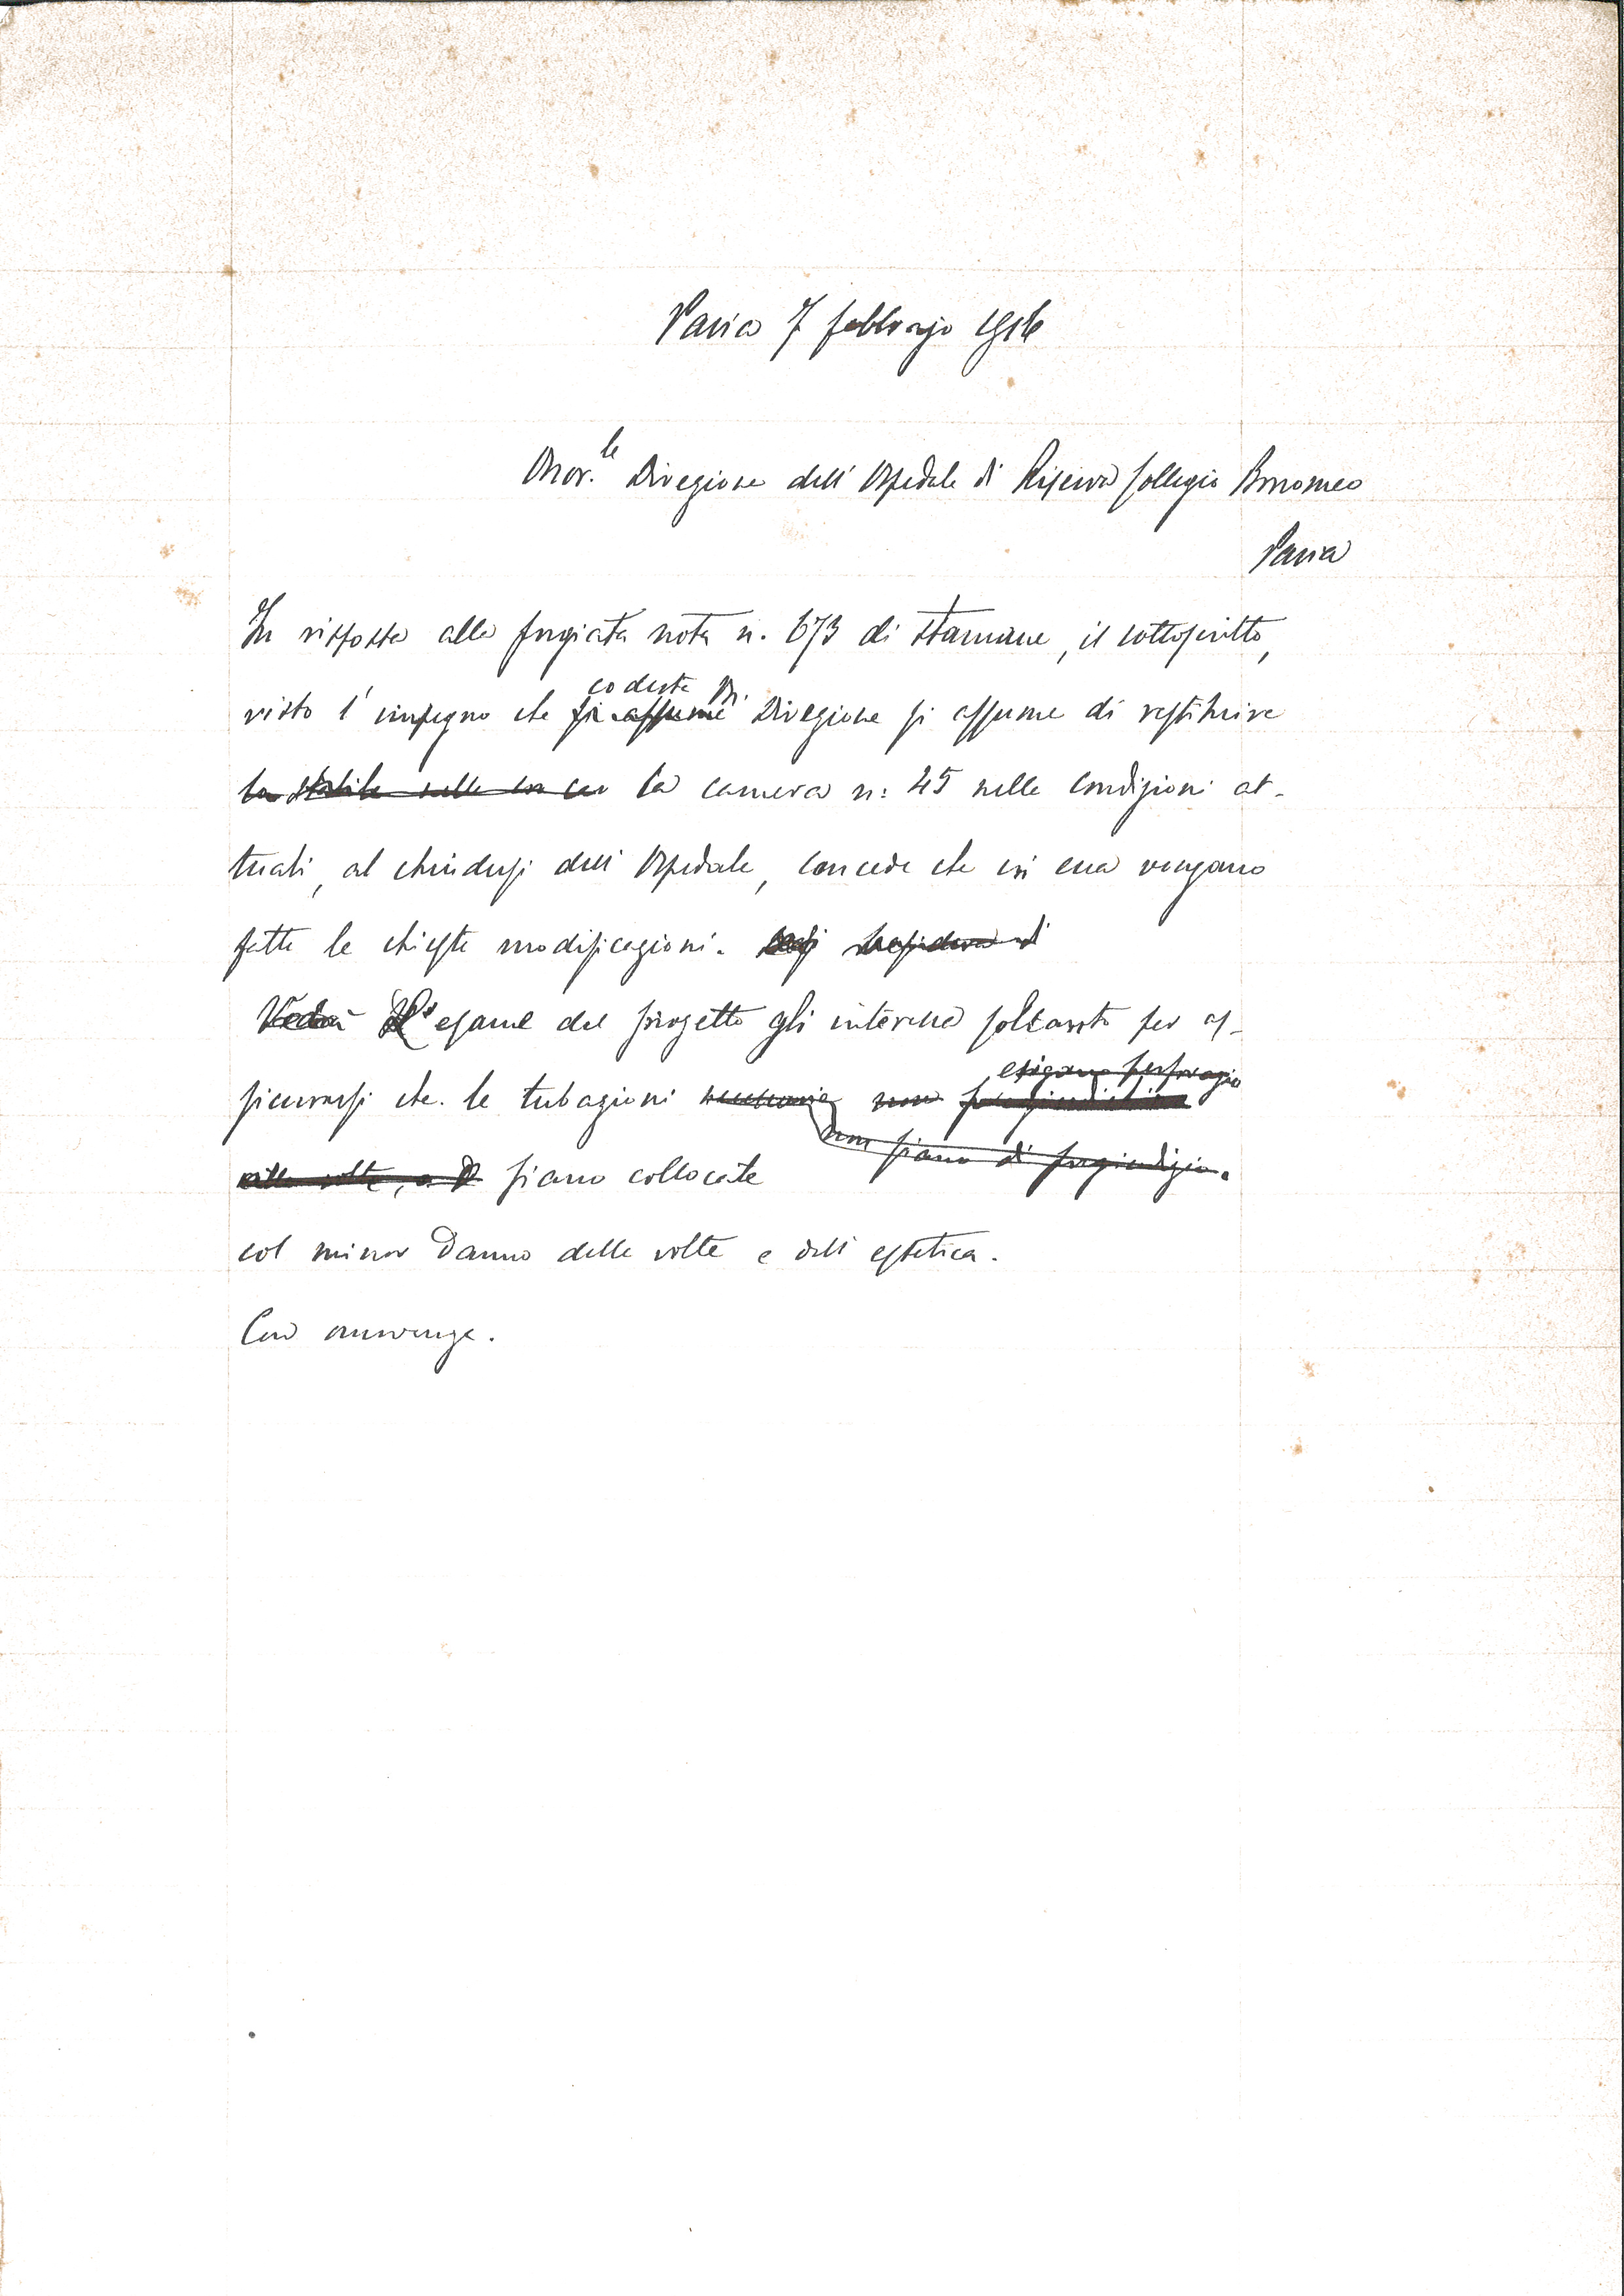 Pavia 7 febbrajo 1916
Onor.le Direzione dell'Ospedale di Riserva Collegio Borromeo
Pavia
In risposta alla pregiata nota n. 673 di stamane, il sottoscritto,
codesta On.
visto l'impegno che si assume Direzione si assume di restituire
lo stabile nelle con la camera n: 45 nelle condizioni at-
tuali, al chiudersi dell'Ospedale, concede che in essa vengano
fatte le chieste modificazioni.
Vedrà L'esame del progetto gli interessa soltanto per as-
esigano perforazio
sicurarsi che le tubazioni necessarie non
non siano di pregiudizio.
alle volte, o siano collocate
col minor danno delle volte e dell'estetica.
Con osservanza.